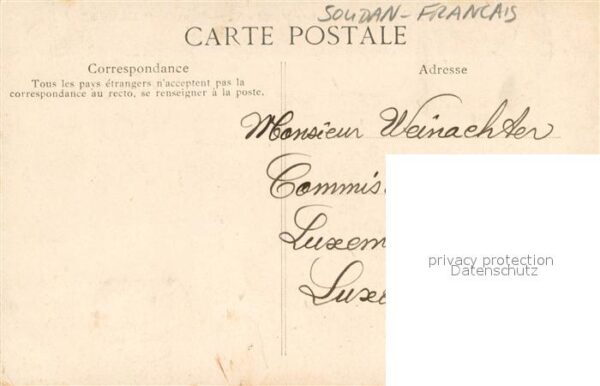 SOUDAN-FRANCAIS
CARTE POSTALE
Correspondance
Tous les pays étrangers n'acceptent pas la
correspondance au recto, se renseigner à la poste.
Adresse
Monsieur Weinachter
Commis
Luxem
Luxe
privacy protection
Datenschutz